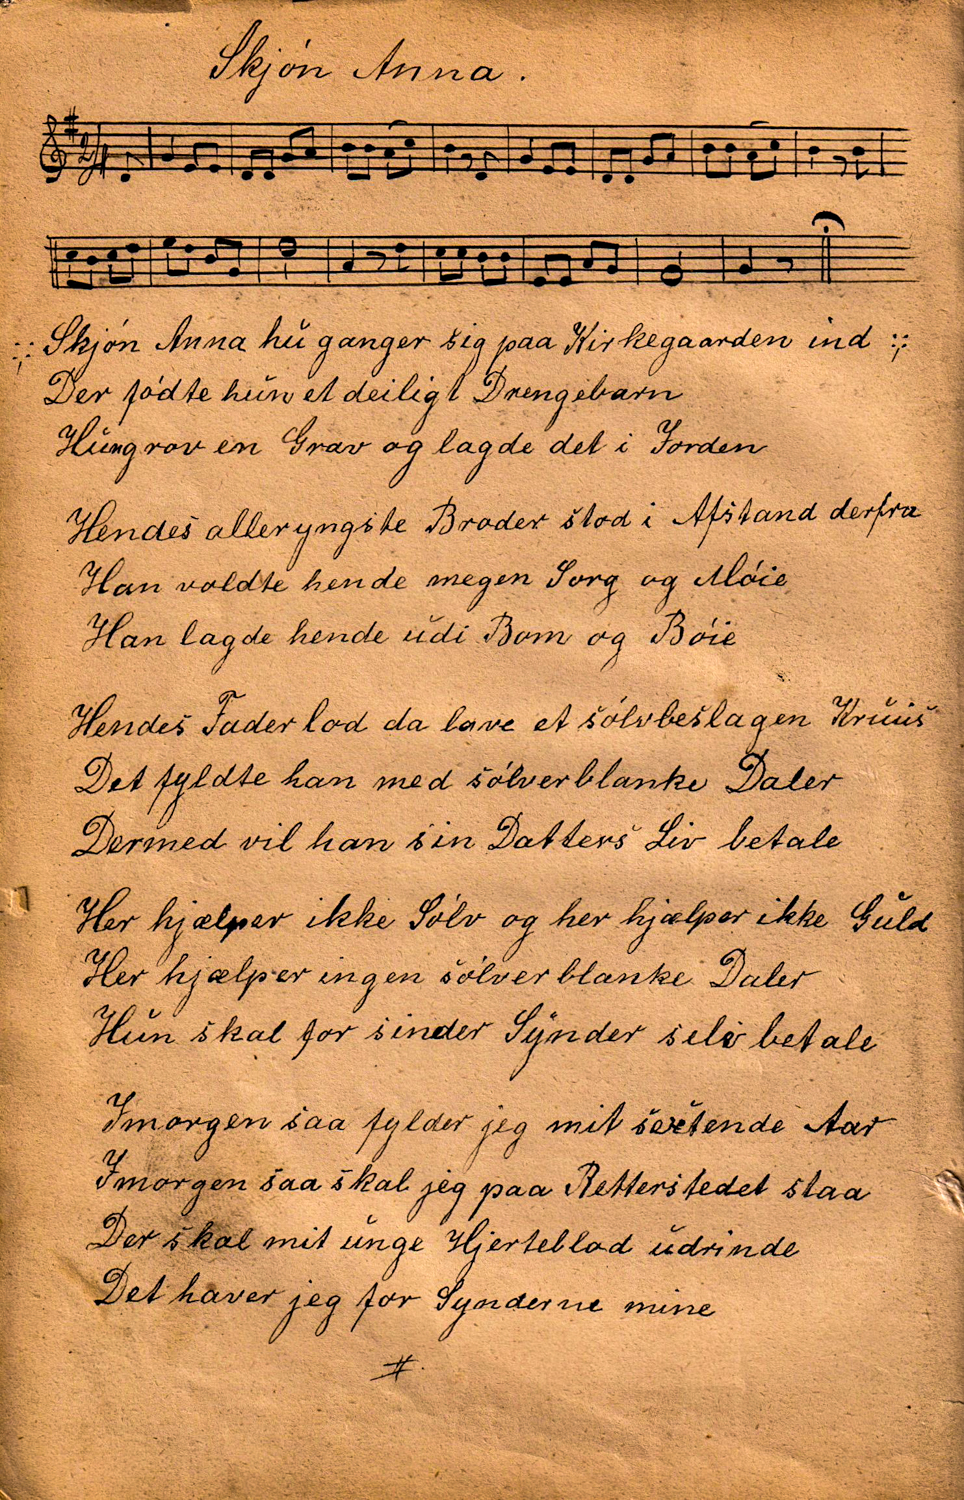 Skjón Anna.
:,: Skjón Anna hŭ ganger sig paa Kirkegaarden ind :,:
Der fódte hŭn et deiligt Drengebarn
Hŭn grov en Grav og lagde det i Jorden
Hendes alleryngste Broder stod i Afstand derfra
Han voldte hende megen Sorg og Móie
Han lagde hende ŭdi Bom og Bóie
Hendes Fader lod da lave et sólvbeslagen Krŭŭs
Det fyldte han med sólverblanke Daler
Dermed vil han sin Datters Liv betale
Her hjælper ikke Sólv og her hjælper ikke Gŭld
Her hjælper ingen sólverblanke Daler
Hŭn skal for sinder Synder selv betale
Imorgen saa fylder jeg mit sextende Aar
Imorgen saa skal jeg paa Retterstedet staa
Der skal mit ŭnge Hjerteblod ŭdrinde
Det haver jeg for Synderne mine